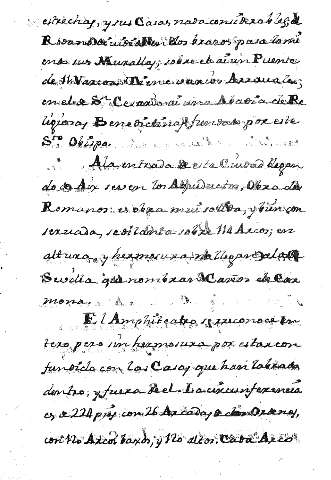 estrechas, y sus Casas, nada considerables, el
Rodano divide en dos brazos, pasa lami
en do sus Murallas; sobre el ai un Puente
de Varcos: Tiene varios Arravales;
en el de Sn. Cesareo ai una Abadia de Re
ligiosas Benedictinas, fundada por este
Sto. Obispo.
A la entrada de esta Ciudad llegan
do de Aix se ven los Aqueductos, Obra de
Romanos: es obra mui solida, y bien con
servada, se dilata sobre 114 Arcos; en
altura, y hermosura, no llegan a los de
Sevilla que nombran Caños de Car
mona.
El Amphiteatro se reconoce en
tero, pero sin hermosura por estar con
fundido con las Casas que han labrado
dentro, y fuera de el. La circunferencia
es de 224 pies, con 26 Arcadas de dos Ordenes,
con Arcos baxos, y altos: Cada Arco